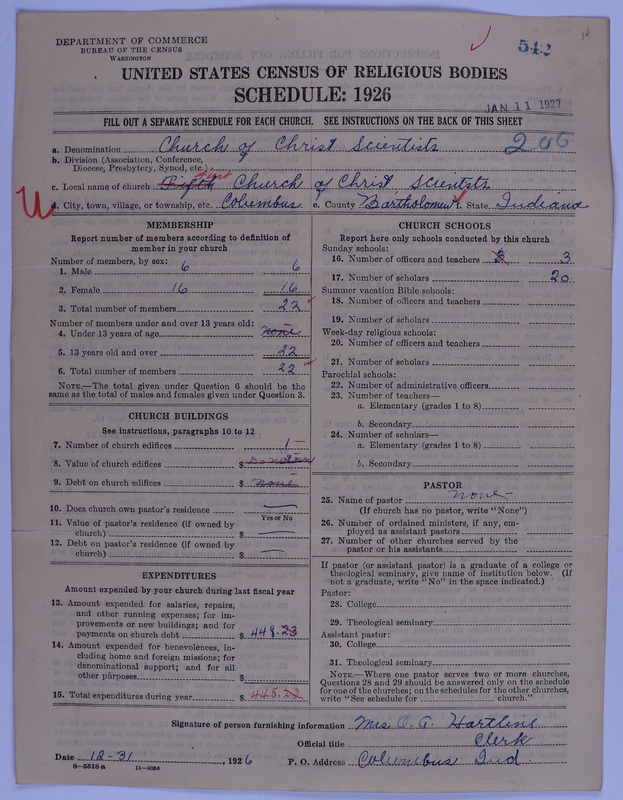 DEPARTMENT OF COMMERCE
BUREAU OF THE CENSUS
WASHINGTON
542
UNITED STATES CENSUS OF RELIGIOUS BODIES
SCHEDULE: 1926
JAN 11 1927
FILL OUT A SEPARATE SCHEDULE FOR EACH CHURCH. SEE INSTRUCTIONS ON THE BACK OF THIS SHEET
a. Denomination Church of Christ Scientists 206
b. Division (Association, Conference,
Diocese, Presbytery, Synod, etc.)
c. Local name of church First Church of Christ, Scientists
d. City, town, village, or township, etc. Columbus e. County Bartholomew f. State Indiana
MEMBERSHIP
Report number of members according to definition of
member in your church
Number of members, by sex:
1. Male 6 6
2. Female 16 16
3. Total number of members 22
Number of members under and over 13 years old:
4. Under 13 years of age none
5. 13 years old and over 22
6. Total number of members 22
NOTE.—The total given under Question 6 should be the
same as the total of males and females given under Question 3.
CHURCH BUILDINGS
See instructions, paragraphs 10 to 12
7. Number of church edifices 1
8. Value of church edifices $
9. Debt on church edifices $ none
10. Does church own pastor's residence
Yes or No
11. Value of pastor's residence (if owned by
church) $
12. Debt on pastor's residence (if owned by
church) $
EXPENDITURES
Amount expended by your church during last fiscal year
13. Amount expended for salaries, repairs,
and other running expenses; for im-
provements or new buildings; and for
payments on church debt $ 448.23
14. Amount expended for benevolences, in-
cluding home and foreign missions; for
denominational support; and for all
other purposes $
15. Total expenditures during year $ 448.23
CHURCH SCHOOLS
Report here only schools conducted by this church
Sunday schools:
16. Number of officers and teachers 3 3
17. Number of scholars 20
Summer vacation Bible schools:
18. Number of officers and teachers
19. Number of scholars
Week-day religious schools:
20. Number of officers and teachers
21. Number of scholars
Parochial schools:
22. Number of administrative officers
23. Number of teachers—
a. Elementary (grades 1 to 8)
b. Secondary
24. Number of scholars—
a. Elementary (grades 1 to 8)
b. Secondary
PASTOR
25. Name of pastor none
(If church has no pastor, write "None")
26. Number of ordained ministers, if any, em-
ployed as assistant pastors
27. Number of other churches served by the
pastor or his assistants
If pastor (or assistant pastor) is a graduate of a college or
theological seminary, give name of institution below. (If
not a graduate, write "No" in the space indicated.)
Pastor:
28. College
29. Theological seminary
Assistant pastor:
30. College
31. Theological seminary
NOTE.—Where one pastor serves two or more churches,
Questions 28 and 29 should be answered only on the schedule
for one of the churches; on the schedules for the other churches,
write "See schedule for church."
Signature of person furnishing information Mrs. O. A. Hartline
Official title Clerk
Date 12-31, 1926 P. O. Address Columbus Ind
8—5518a 11—9054